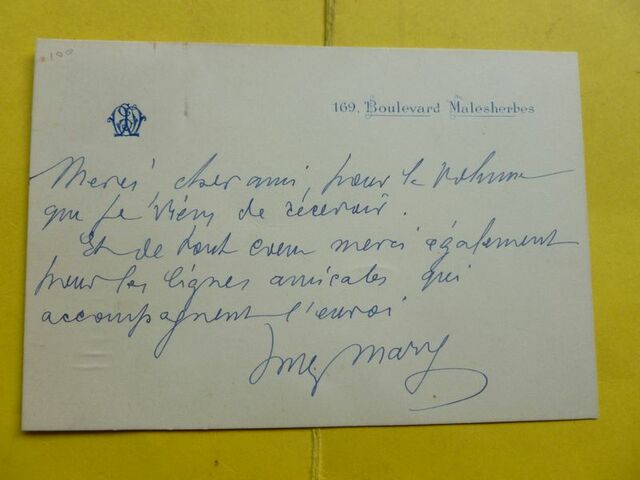 100
169, Boulevard Malesherbes
Merci, cher ami, pour le volume
que je viens de recevoir.
Et de tout coeur merci également
pour les lignes amicales qui
accompagnent l'envoi
Mary